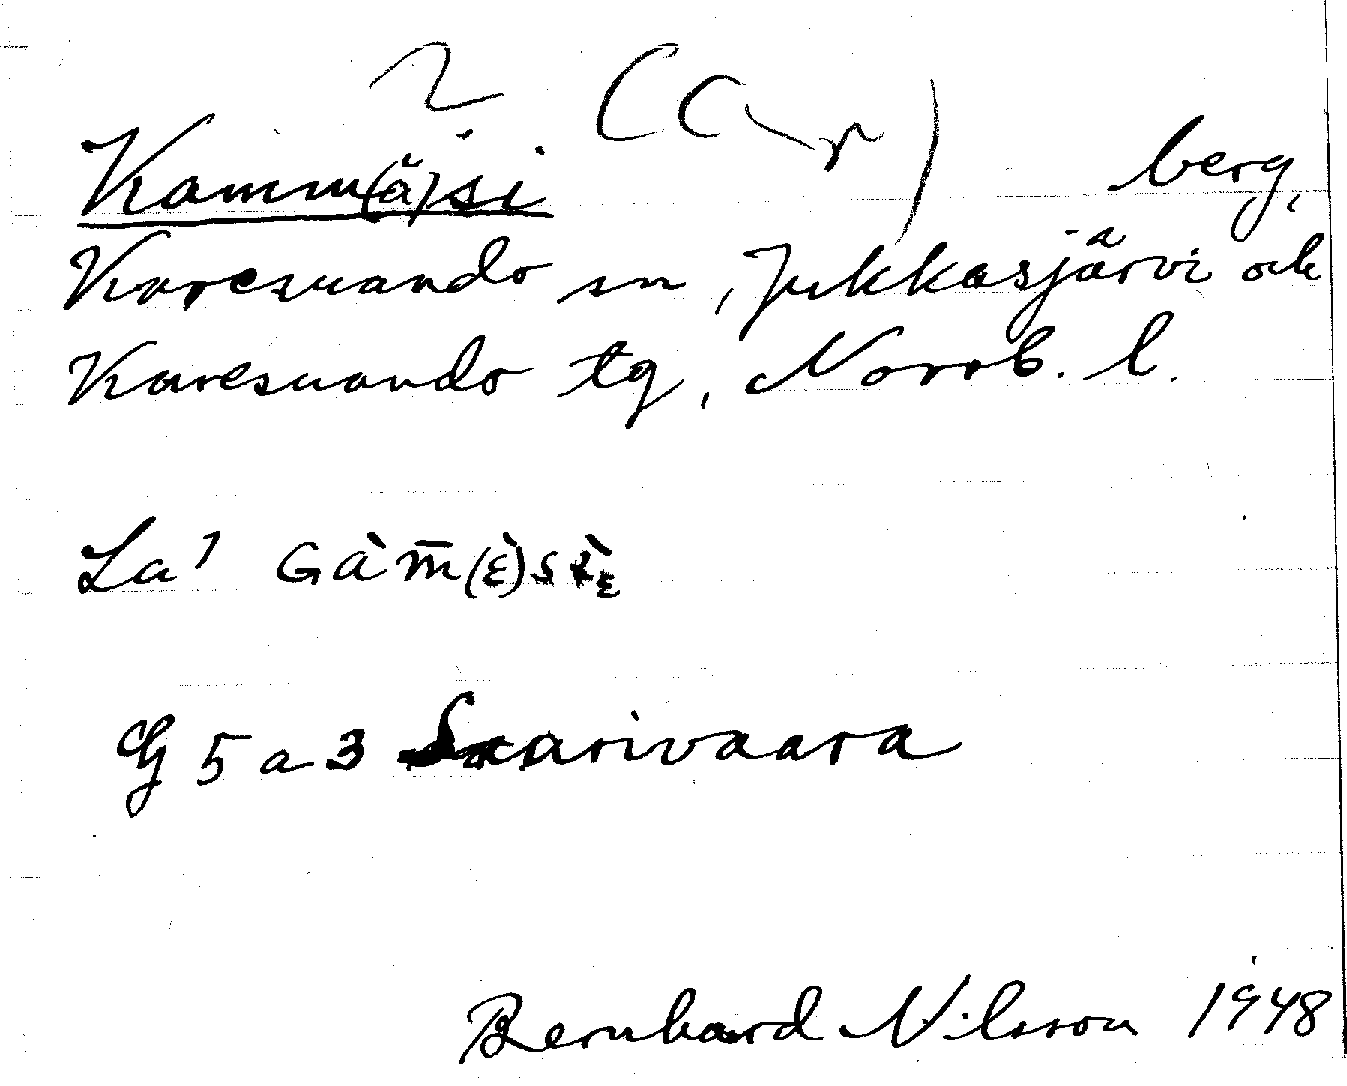 Kamm(ä)si berg,
Karesuando sn, Jukkasjärvi och
Karesuando tg, Norrb. l.
La
G 5 a 3 Saarivaara
Bernhard Nilsson 1948